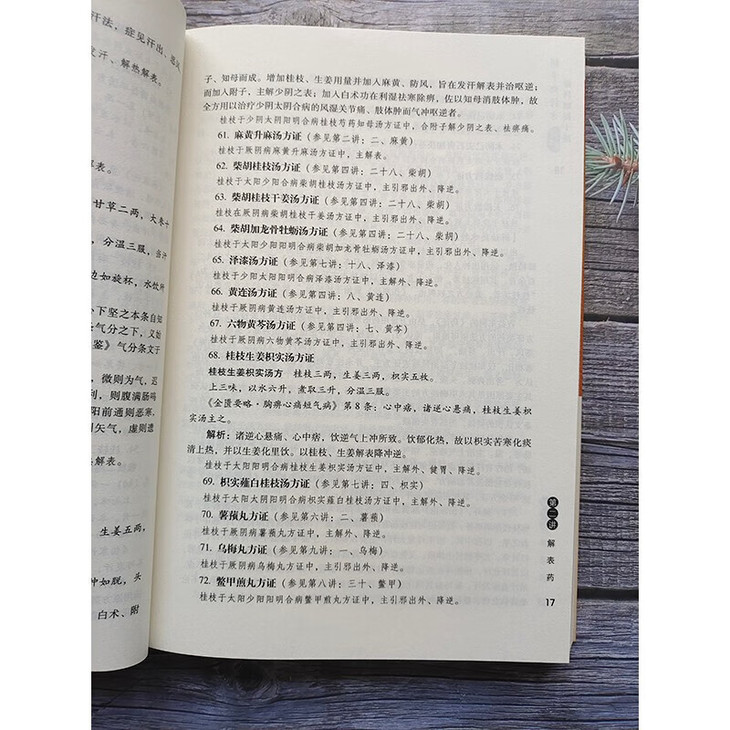 汗法，症见汗出、恶风
发汗、解热解表。
解表。
甘草二两，大枣十
分温三服，当汗
边如旋杯，水饮所
心下坚之本条自知
条气分之下，义始
鉴》气分条文于
微则为气，迟
利，则腹满肠鸣
阳前通则恶寒，
则矢气，虚则遗
解表。
生姜五两，
肿如脱，头
白术、附
子、知母而成。增加桂枝、生姜用量并加入麻黄、防风，旨在发汗解表并治呕逆；
而加入附子，主解少阴之表；加入白术功在利湿祛寒除痹，佐以知母消肢体肿，故
全方用以治疗少阴太阴合病的风湿关节痛、肢体肿而气冲呕逆者。
桂枝于少阴太阴阳明合病桂枝芍药知母汤方证中，合附子解少阴之表、祛痹痛。
61. 麻黄升麻汤方证（参见第二讲：二、麻黄）
桂枝于厥阴病麻黄升麻汤方证中，主解表。
62. 柴胡桂枝汤方证（参见第四讲：二十八、柴胡）
桂枝于太阳少阳合病柴胡桂枝汤方证中，主引邪出外、降逆。
63. 柴胡桂枝干姜汤方证（参见第四讲：二十八、柴胡）
桂枝在厥阴病柴胡桂枝干姜汤方证中，主引邪出外、降逆。
64. 柴胡加龙骨牡蛎汤方证（参见第四讲：二十八、柴胡）
桂枝于太阳少阳阳明合病柴胡加龙骨牡蛎汤方证中，主解外、降逆。
65. 泽漆汤方证（参见第七讲：十八、泽漆）
桂枝于少阳太阳阳明合病泽漆汤方证中，主解外、降逆。
66. 黄连汤方证（参见第四讲：八、黄连）
桂枝于厥阴病黄连汤方证中，主引邪出外、降逆。
67. 六物黄芩汤方证（参见第四讲：七、黄芩）
桂枝于厥阴病六物黄芩汤方证中，主引邪出外、降逆。
68. 桂枝生姜枳实汤方证
桂枝生姜枳实汤方 桂枝三两，生姜三两，枳实五枚。
上三味，以水六升，煮取三升，分温三服。
《金匮要略·胸痹心痛短气病》第 8 条：心中痞，诸逆心悬痛，桂枝生姜枳
实汤主之。
解析：诸逆心悬痛、心中痞，饮逆气上冲所致。饮郁化热，故以枳实苦寒化痰
清上热，并以生姜化里饮。以桂枝、生姜解表降冲逆。
桂枝于太阳阳明合病桂枝生姜枳实汤方证中，主解外、健胃、降逆。
69. 枳实薤白桂枝汤方证（参见第七讲：四、枳实）
桂枝于太阳太阴阳明合病枳实薤白桂枝汤方证中，主解外、降逆。
70. 薯蓣丸方证（参见第六讲：二、薯蓣）
桂枝于厥阴病薯蓣丸方证中，主解外、降逆。
71. 乌梅丸方证（参见第九讲：一、乌梅）
桂枝于厥阴病乌梅丸方证中，主引邪出外、降逆。
72. 鳖甲煎丸方证（参见第八讲：三十、鳖甲）
桂枝于太阳少阳阳明合病鳖甲煎丸方证中，主引邪出外、降逆。
第二讲 解表药
17